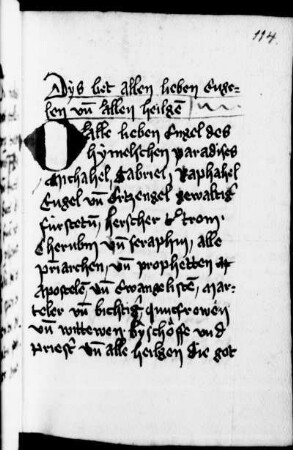 114.
Dys bet allen lieben Enge-
len vn̄ allen heilgē
O alle lieben Engel des
hymelschen paradises
Michahel Gabriel, Raphahel
Engel vn̄ Ertzengel gewaltig
fürstetū, herscher tron
Cherubin vn̄ seraphin, alle
priarchen, vn̄ prophetten
Apostelē vn̄ Ewangelistē, mar-
teler vn̄ bichtig, Junckfrowen
vn̄ wittewen byschöffe vnd
priest vn̄ alle heilgen die got